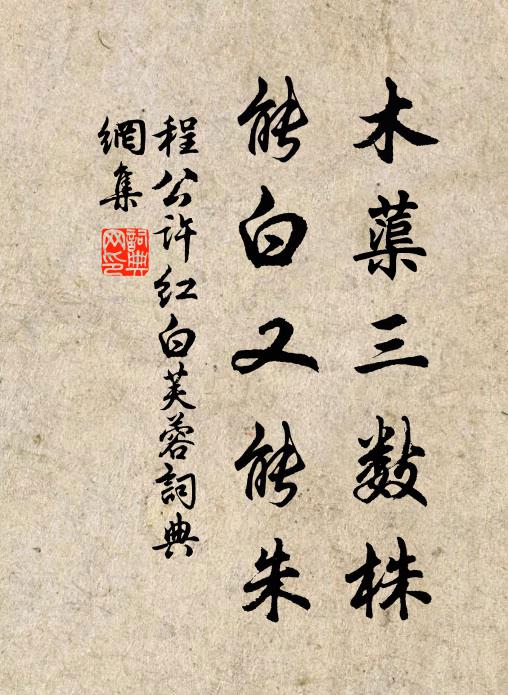 木蕖三数株
能白又能朱
程公许红白芙蓉詞典
網集
詞典
网印